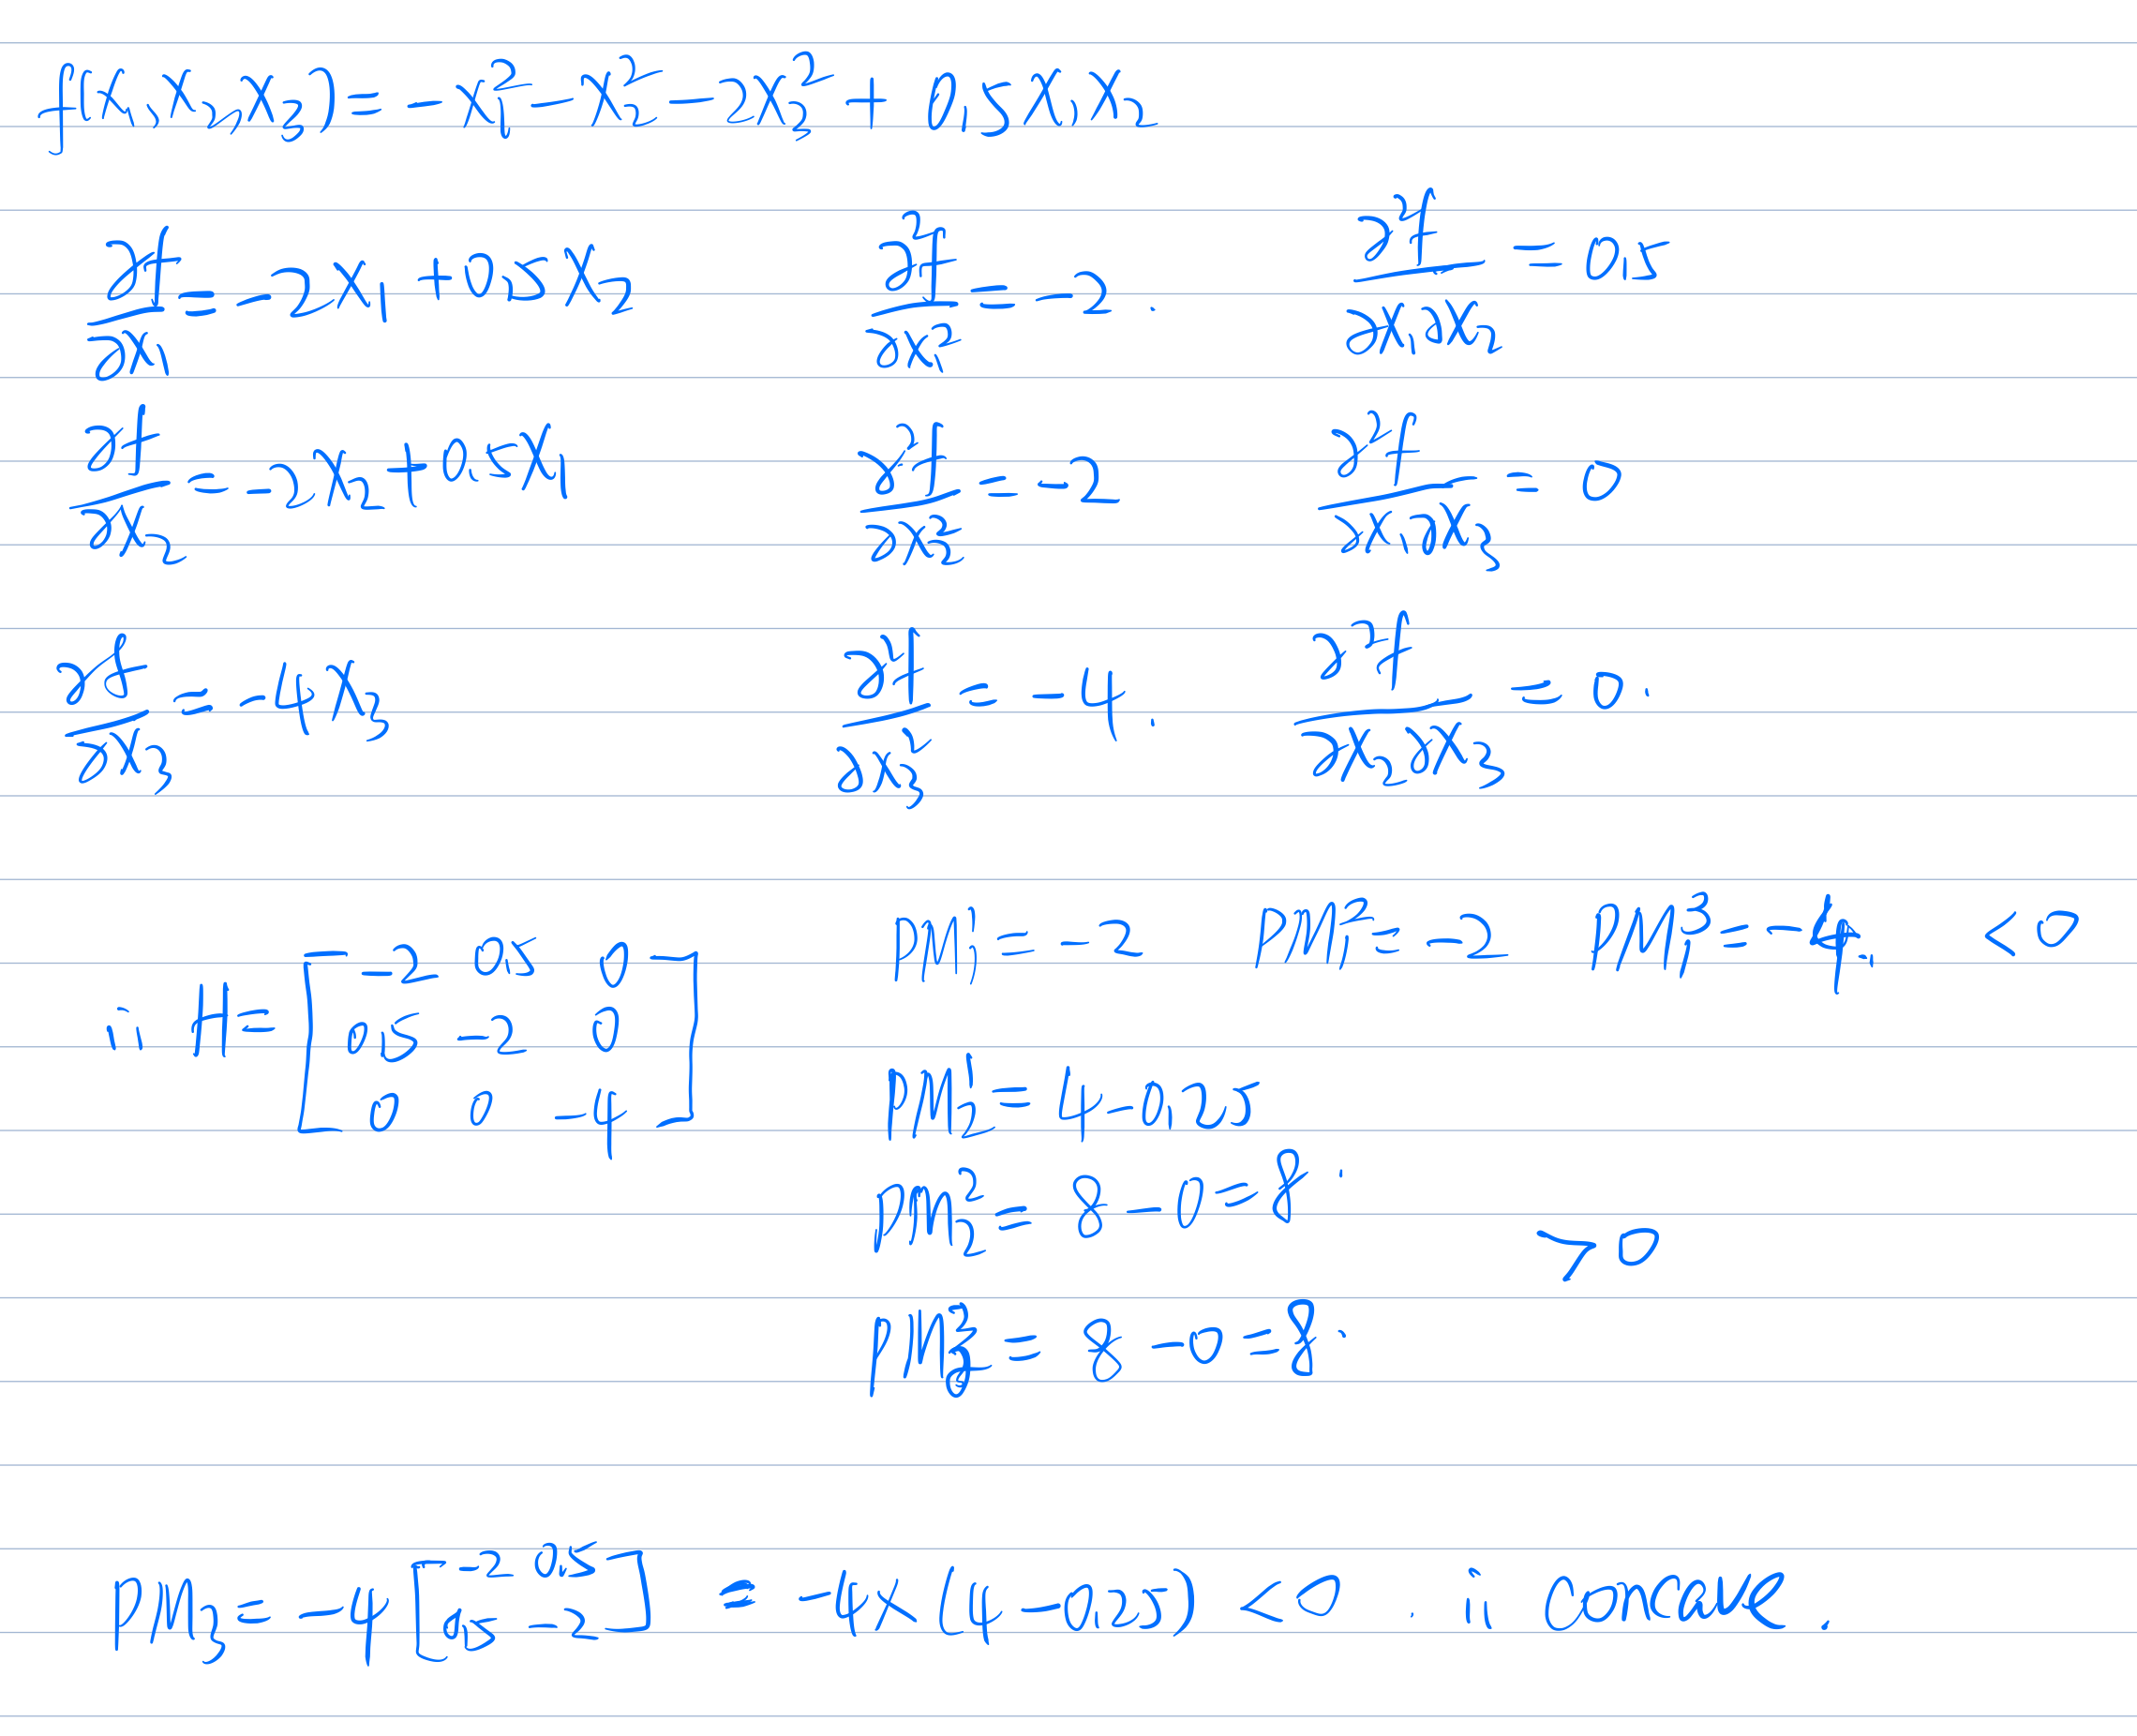 f(x₁, x₂, x₃) = -x₁² - x₂² - 2x₃² + 0.5x₁x₂
∂f/∂x₁ = -2x₁ + 0.5x₂   ∂²f/∂x₁² = -2.   ∂²f/∂x₁∂x₂ = 0.5
∂f/∂x₂ = -2x₂ + 0.5x₁   ∂²f/∂x₂² = -2   ∂²f/∂x₁∂x₃ = 0
∂f/∂x₃ = -4x₃   ∂²f/∂x₃² = -4.   ∂²f/∂x₂∂x₃ = 0.
∴ H = [-2 0.5 0; 0.5 -2 0; 0 0 -4]
PM₁¹ = -2   PM₁² = -2   PM₁³ = -4. < 0
PM₂¹ = 4 - 0.25
PM₂² = 8 - 0 = 8.
> 0
PM₂³ = 8 - 0 = 8.
PM₃ = -4[-2 0.5; 0.5 -2] = -4 × (4 - 0.25) < 0. ∴ concave.